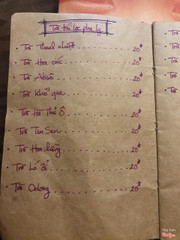 Trà túi lọc pha ly
• Trà Thanh nhiệt ........ 20đ
• Trà Hoa cúc ........ 20đ
• Trà Atisô ........ 20đ
• Trà Khổ qua ........ 20đ
• Trà Hà Thủ Ô ........ 20đ
• Trà Tim Sen ........ 20đ
• Trà Hoa hồng ........ 20đ
• Trà Lá ổi ........ 20đ
• Trà Oolong ........ 20đ